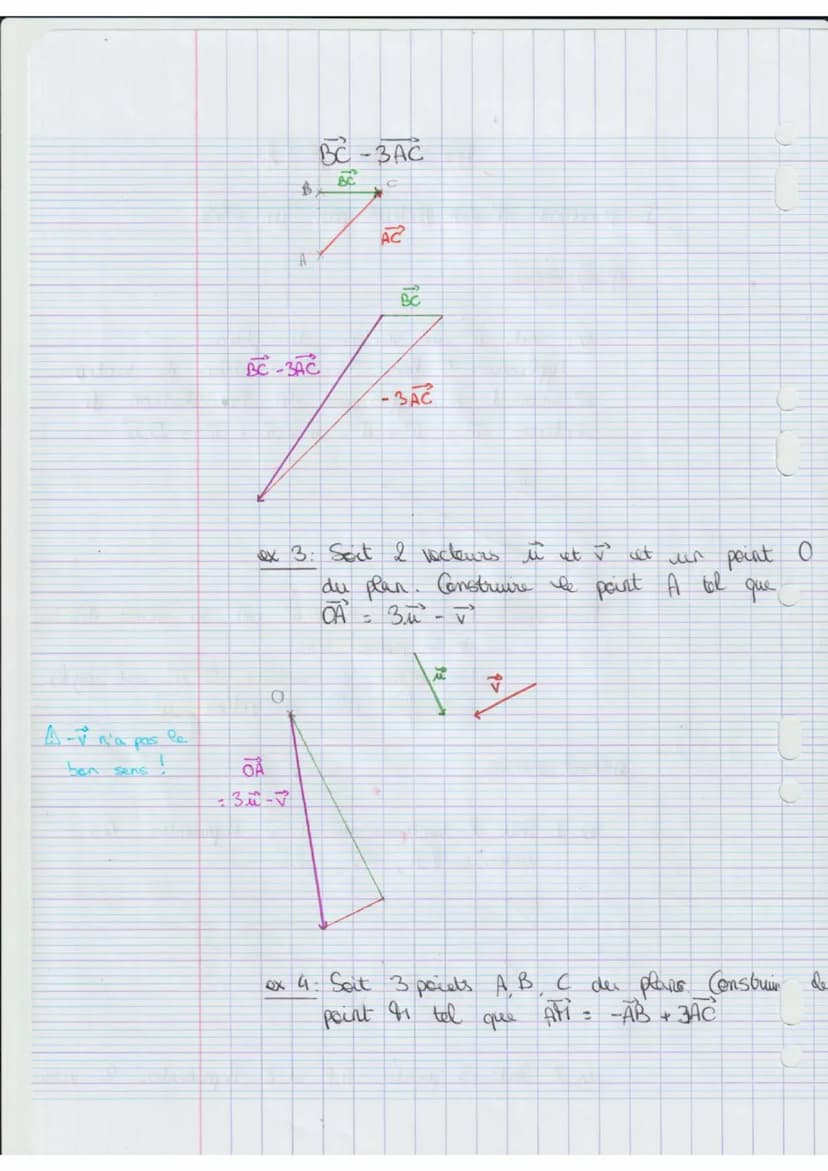 BC⃗ - 3AC⃗
B BC⃗ C
AC⃗
A
BC⃗
BC⃗ - 3AC⃗
- 3AC⃗
ex 3: Soit 2 vecteurs u⃗ et v⃗ et un point O
du plan. Construire le point A tel que
OA⃗ = 3u⃗ - v⃗
u⃗
v⃗
O
⚠ -v⃗ n'a pas le
bon sens !
OA⃗
= 3u⃗ - v⃗
ex 4: Soit 3 points A, B, C du plans. Construire le
point M tel que AM⃗ = -AB⃗ + 3AC⃗